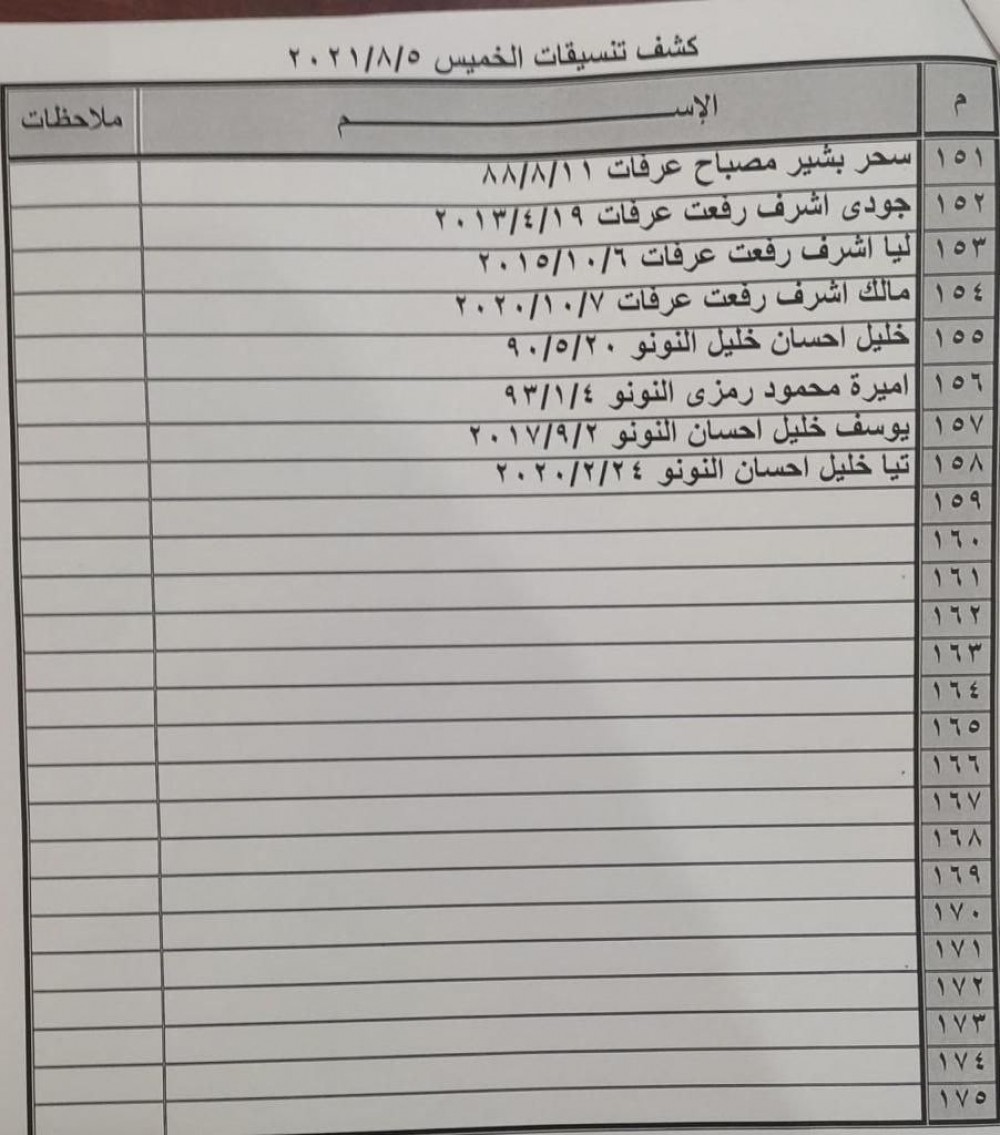 كشف تنسيقات الخميس ٢٠٢١/٨/٥
م الإســـــــــم ملاحظات
١٥١ سحر بشير مصباح عرفات ٨٨/٨/١١
١٥٢ جودى اشرف رفعت عرفات ٢٠١٣/٤/١٩
١٥٣ ليا اشرف رفعت عرفات ٢٠١٥/١٠/٦
١٥٤ مالك اشرف رفعت عرفات ٢٠٢٠/١٠/٧
١٥٥ خليل احسان خليل النونو ٩٠/٥/٢٠
١٥٦ اميرة محمود رمزى النونو ٩٣/١/٤
١٥٧ يوسف خليل احسان النونو ٢٠١٧/٩/٢
١٥٨ تيا خليل احسان النونو ٢٠٢٠/٢/٢٤
١٥٩
١٦٠
١٦١
١٦٢
١٦٣
١٦٤
١٦٥
١٦٦
١٦٧
١٦٨
١٦٩
١٧٠
١٧١
١٧٢
١٧٣
١٧٤
١٧٥